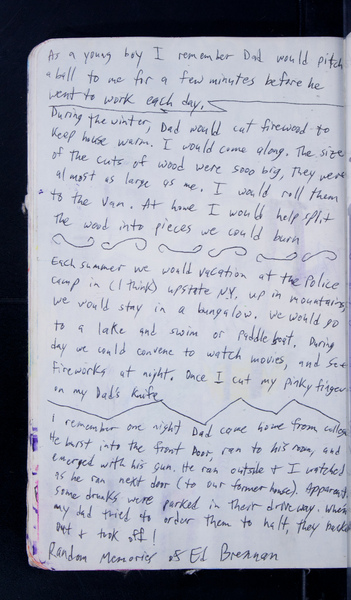 As a young boy I remember Dad would pitch
a ball to me for a few minutes before he
went to work each day.
During the winter, Dad would cut firewood to
keep house warm. I would come along. The size
of the cuts of wood were sooo big, They were
almost as large as me. I would roll them
to the van. At home I would help split
the wood into pieces we could burn
Each summer we would vacation at the Police
camp in (I think) upstate N.Y. up in mountains,
we would stay in a bungalow. We would go
to a lake and swim or paddle boat. During
day we could convene to watch movies, and see
Fireworks at night. Once I cut my pinky finger
on my Dad's knife
I remember one night Dad came home from college
He burst into the front door, ran to his room, and
emerged with his gun. He ran outside & I watched
as he ran next door (to our former house). Apparent.
some drunks were parked in their driveway. When
my dad tried to order them to halt, they backed
out & took off!
Random Memories of Ed Brennan